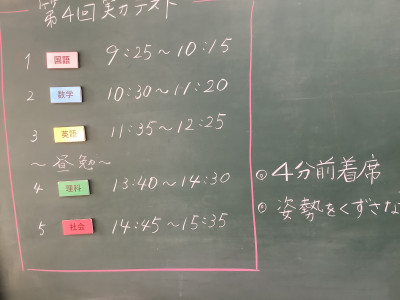 第4回実力テスト
1 国語 9:25～10:15
2 数学 10:30～11:20
3 英語 11:35～12:25
～昼勉～
4 理科 13:40～14:30
5 社会 14:45～15:35
◎4分前着席
◎姿勢をくずさな